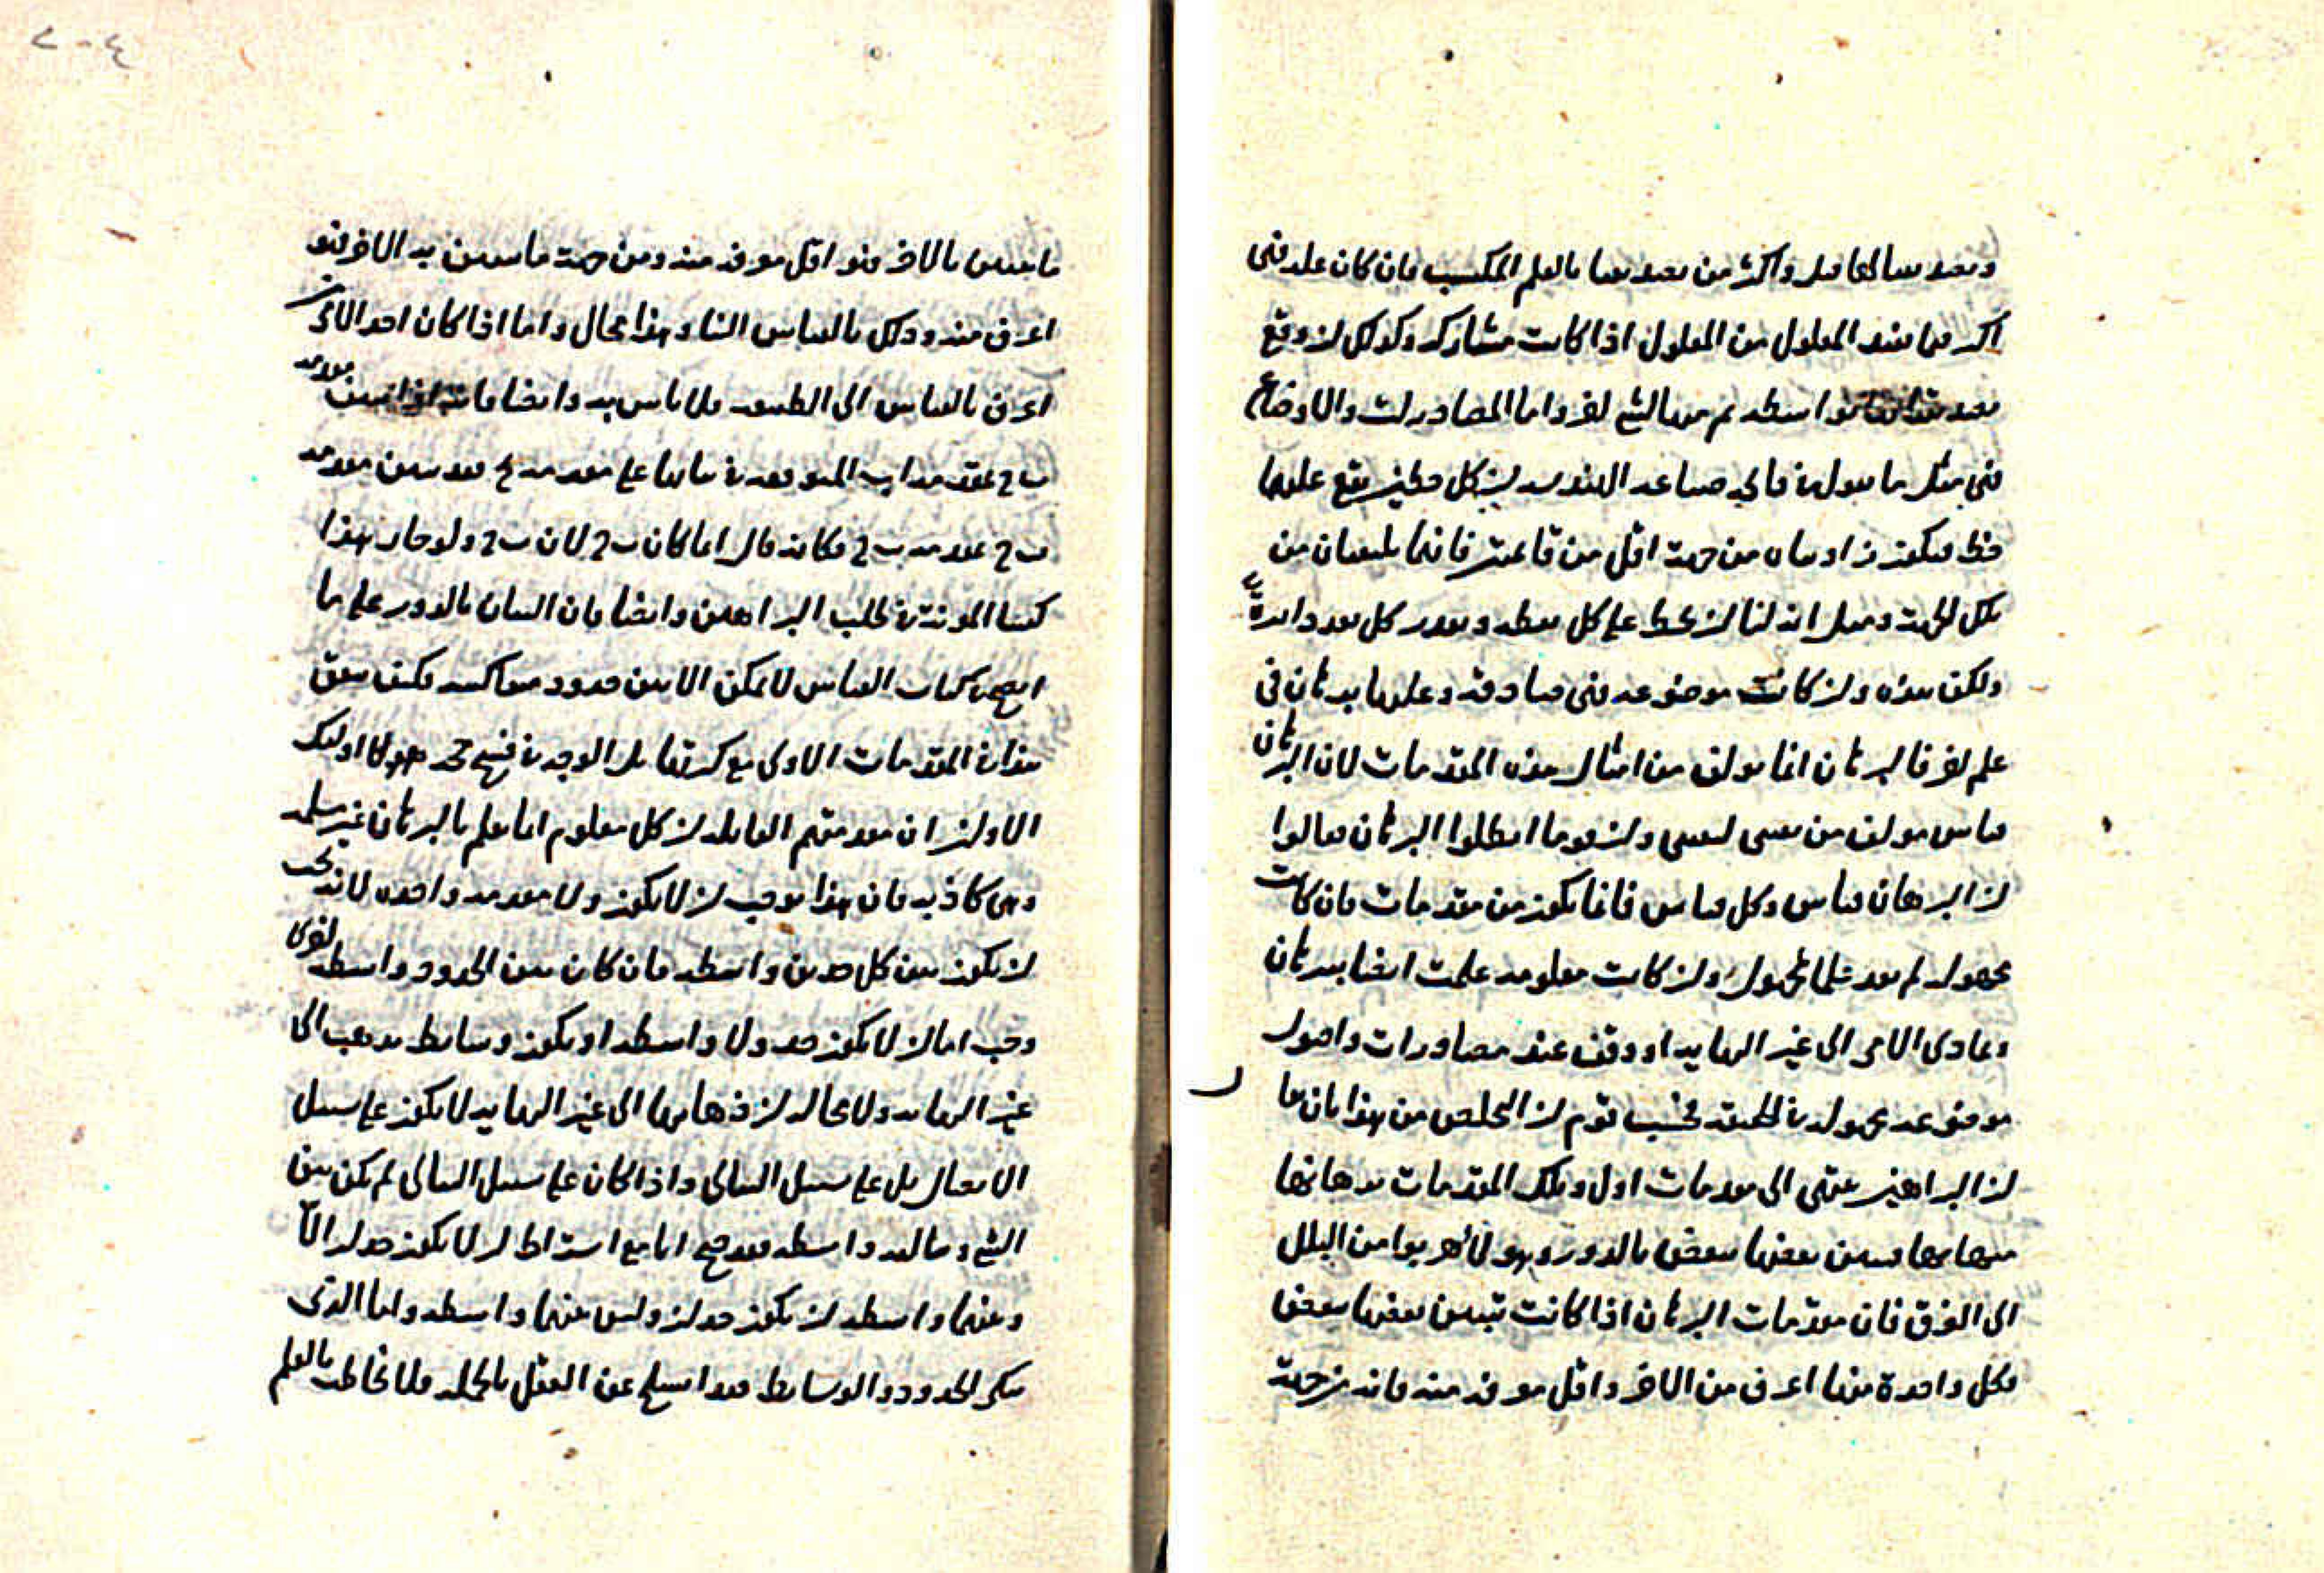 وتصديقنا بها قبل واكثر من تصديقنا بالعلم المكتسب فان كان علة فهى
اكثر مما يفيد المعلول من المعلول اذا كانت مشاركة وكذلك ان وقع
بواسطة ثم من الشئ اخر واما المصادرات والاوضاع
فهى مثل ما يقول فى صناعة الهندسة ان كل خطين يقع عليهما
خط فيكون زاويتاه من جهة اقل من قائمتين فانهما يلتقيان من
تلك الجهة ومثل انه لنا ان نخط على كل نقطة وبقدر كل بعد دايرة
ولكن هذه وان كانت موضوعة فهى صادقة وعليها برهان فى
علم اخر فالبرهان انما يولف من امثال هذه المقدمات لان البرهان
قياس مولف من يقينى ليقينى وان قوما ابطلوا البرهان فقالوا
ان البرهان قياس وكل قياس فانما يكون من مقدمات فان كانت
مجهولة لم يفد علما بمجهول وان كانت معلومة علمت ايضا ببرهان
وتمادى الامر الى غير النهاية او وقف عند مصادرات واصول
موضوعة مجهولة فى الحقيقة فحسب قوم ان التخلص من هذا بان قالوا
ان البراهين تنتهى الى مقدمات اول وتلك المقدمات برهانها
فيها بعضها ببعض بالدور وهولاء هربوا من البلل
الى الغرق فان مقدمات البرهان اذا كانت تبين بعضها ببعض
فكل واحدة منها اعرف من الاخر واقل معرفة منه فانه من جهة
ما يتبين بالاخر فهو اقل معرفة منه ومن جهة ما يتبين به الاخر فهو
اعرف منه وذلك بالقياس الينا وهذا محال واما اذا كان احد الامرين
اعرف بالقياس الى الطبيعة فلا باس به وايضا فانه اذا تبين مقدمة
ب ج مقدمة ب ج فكانه قال انما كان ب ج لان ب ج ولو جاز هذا
كفينا المونة فى طلب البراهين وايضا فان البيان بالدور على ما
اتضح فى كتاب القياس لا يمكن الا بين حدود متعاكسة فكيف يتفق
هذا فى المقدمات الاولى مع كثرتها بل الوجه فى فسخ حجج هولاء اوليك
الاولين ان مقدمتهم القايلة ان كل معلوم انما يعلم بالبرهان غير مسلمة
وهى كاذبة فان هذا يوجب ان لا يكون ولا مقدمة واحدة لانه يجب
ان يكون بين كل حدين واسطة فان كان بين الحدود واسطة اخرى
وجب اما ان لا يكون حد ولا واسطة او يكون وسايط يذهب الى
غير النهاية ولا محالة ان ذهابها الى غير النهاية لا يكون على سبيل
الاتصال بل على سبيل التتالى واذا كان على سبيل التتالى لم يكن بين
الشئ وتاليه واسطة فقد صح انا مع اشتراط ان لا يكون حدان الا
وبينهما واسطة ان يكون حدان وليس بينهما واسطة واما الذى
ينكر الحدود والوسايط فقد انسلخ عن العقل بالجملة فلا يخاطب بالعلم